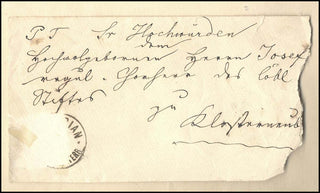 P T Sr Hochwürden
dem
Hochwolgebornen Herrn Josef
regul. Chorherr des löbl
Stiftes
zu
Klosterneub
IAN